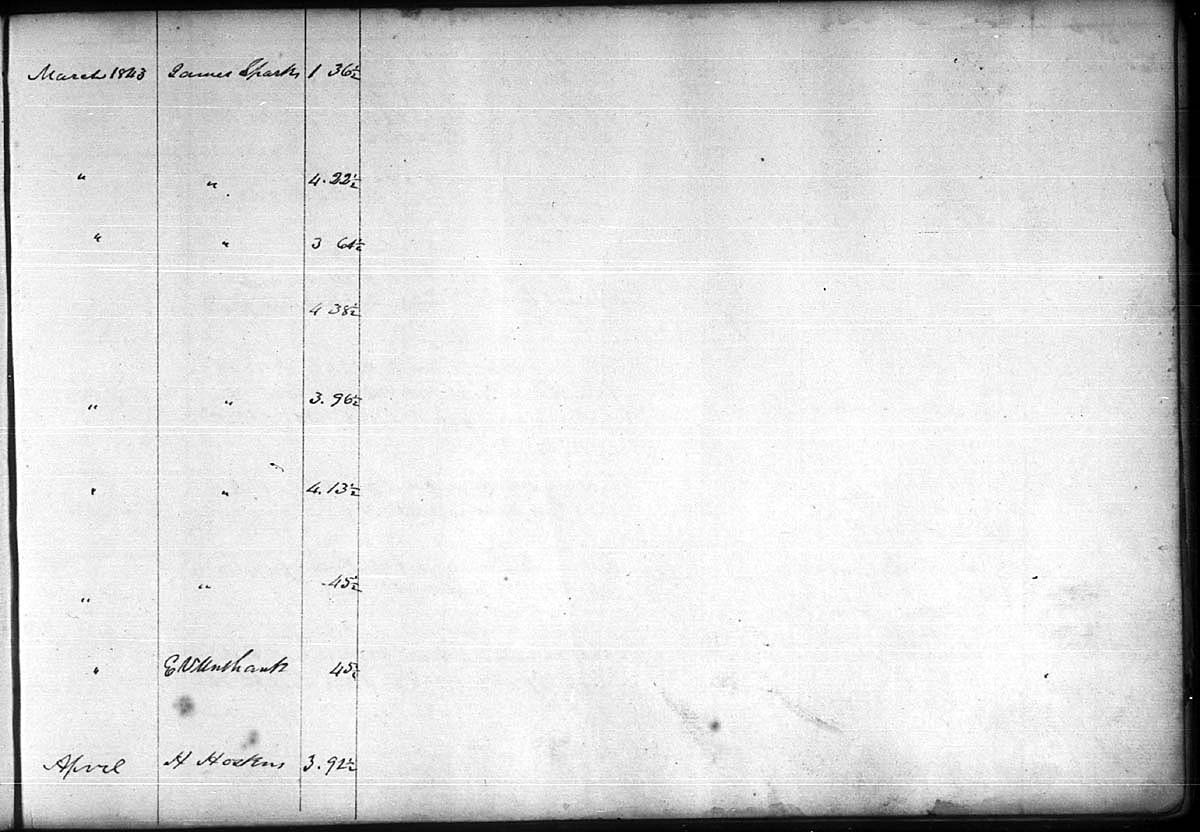 March 1843 James Sparks 1 36½
" " 4.22½
" " 3 61½
4 38½
" " 3.96½
" " 4.13½
" " .45½
" E Unthank 45½
April H Hoskins 3.92½